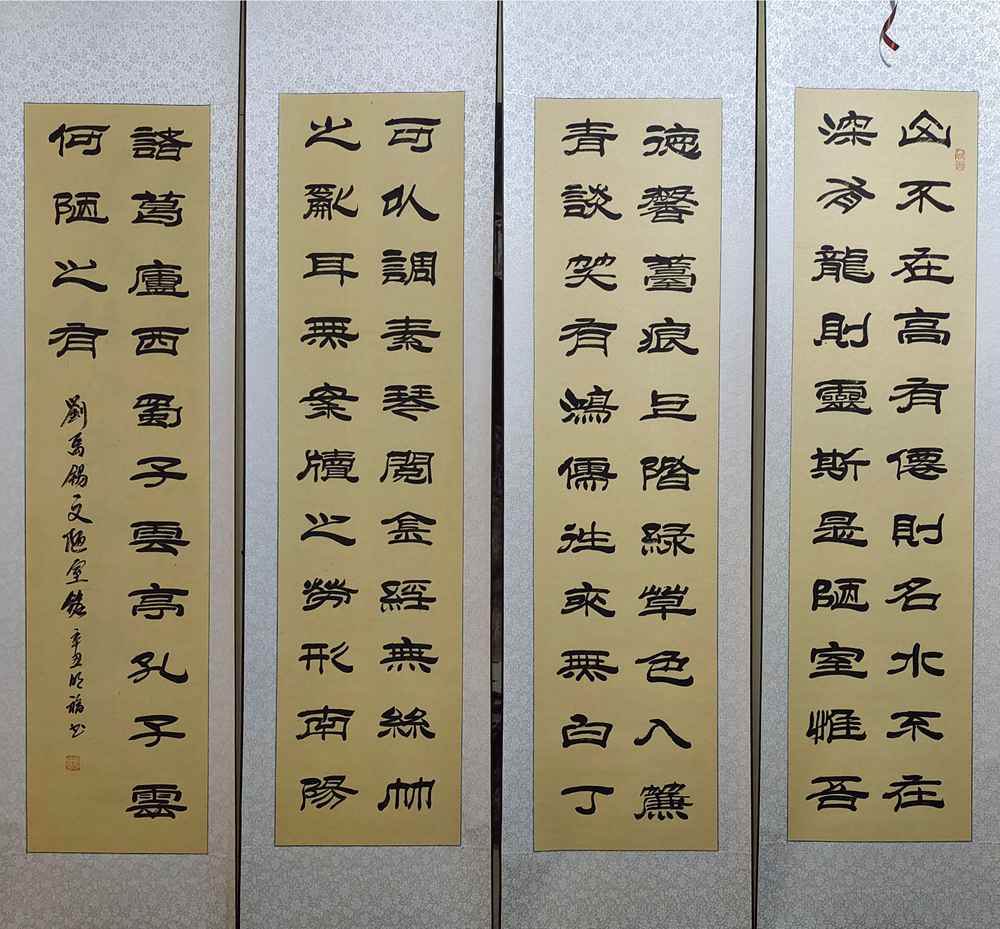 山不在高有僊則名水不在
深有龍則靈斯是陋室惟吾
德馨薹痕上階緑草色入簾
青談笑有鴻儒往來無白丁
可以調素琴閱金經無絲竹
之亂耳無案牘之勞形南陽
諸葛廬西蜀子雲亭孔子雲
何陋之有
劉禹錫文陋室銘 辛丑明福书